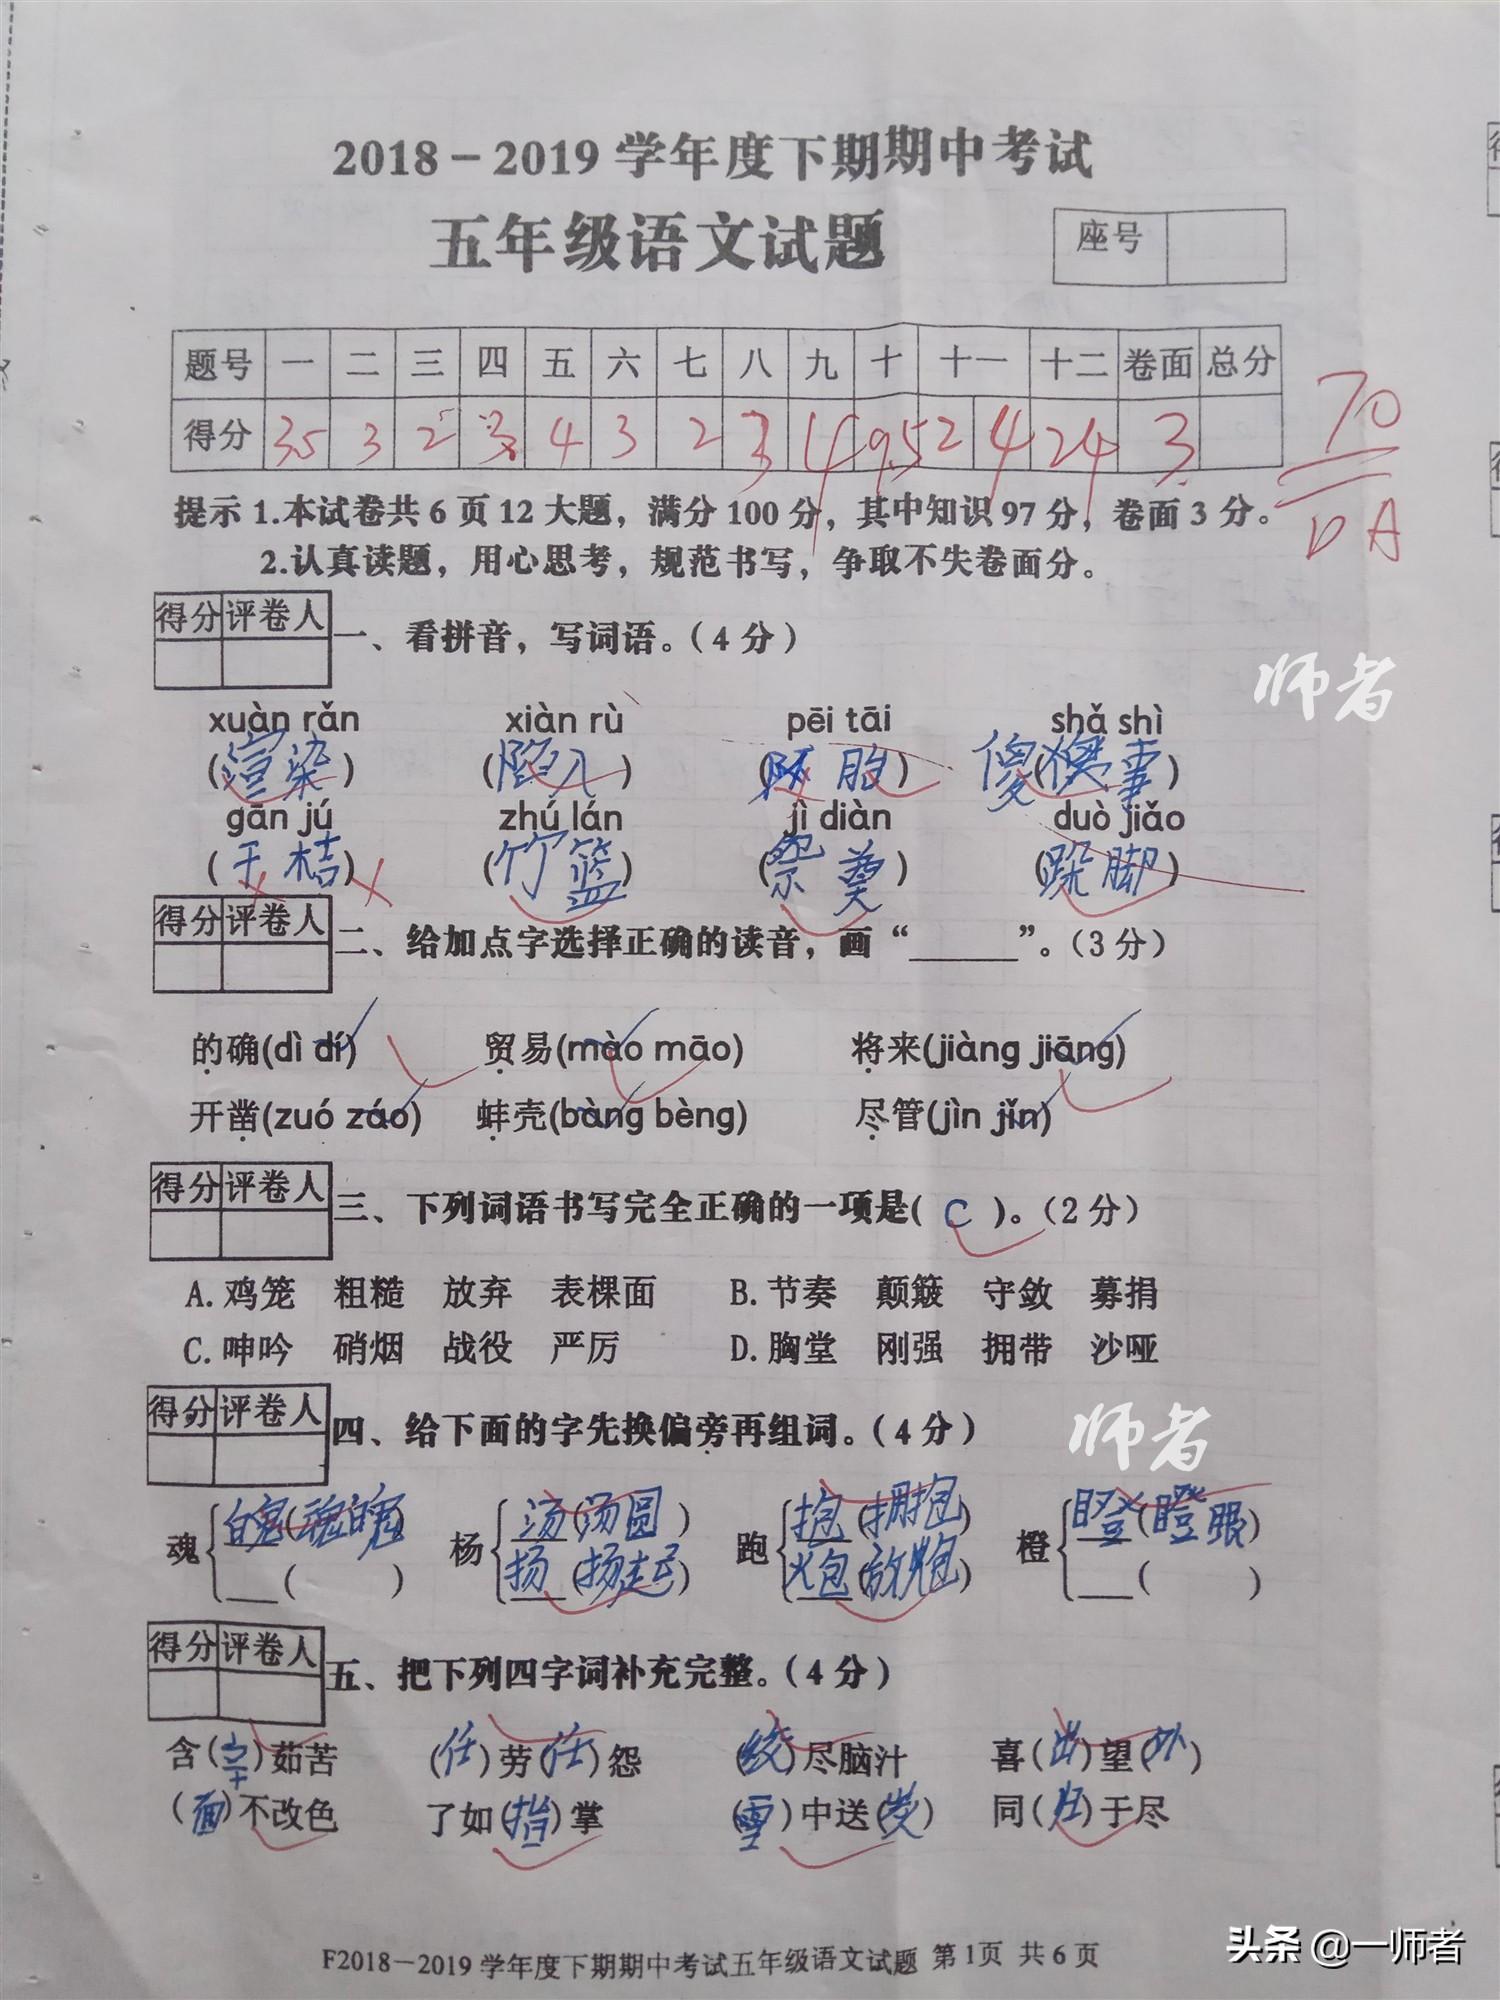 2018－2019 学年度下期期中考试
五年级语文试题
座号
题号 一 二 三 四 五 六 七 八 九 十 十一 十二 卷面 总分
得分 3.5 3 2 3 4 3 2 3 4 9.5 2 4 24 3
70
DA
提示 1.本试卷共 6 页 12 大题，满分 100 分，其中知识 97 分，卷面 3 分。
2.认真读题，用心思考，规范书写，争取不失卷面分。
得分 评卷人
一、看拼音，写词语。（4 分）
师者
xuàn rǎn xiàn rù pēi tāi shǎ shì
(渲染) (陷入) ( 胎) 傻( 事)
gān jú zhú lán jì diàn duò jiǎo
(干桔) (竹篮) (祭奠) (跺脚)
得分 评卷人
二、给加点字选择正确的读音，画“＿＿＿”。（3 分）
的确(dì dí) 贸易(mào māo) 将来(jiàng jiāng)
开凿(zuó záo) 蚌壳(bàng bèng) 尽管(jìn jǐn)
得分 评卷人
三、下列词语书写完全正确的一项是( C )。（2 分）
A. 鸡笼 粗糙 放弃 表棵面 B. 节奏 颠簸 守敛 募捐
C. 呻吟 硝烟 战役 严厉 D. 胸堂 刚强 拥带 沙哑
得分 评卷人
四、给下面的字先换偏旁再组词。（4 分）
师者
魂 魄(魂魄) 杨 汤(汤圆) 跑 抱(拥抱) 橙 瞪(瞪眼)
＿＿( ) 扬(扬起) 炮(放炮) ＿＿( )
得分 评卷人
五、把下列四字词补充完整。（4 分）
含(辛)茹苦 (任)劳(任)怨 (绞)尽脑汁 喜(出)望(外)
(面)不改色 了如(指)掌 (雪)中送(炭) 同(归)于尽
F2018－2019 学年度下期期中考试五年级语文试题 第 1 页 共 6 页
头条 @一师者